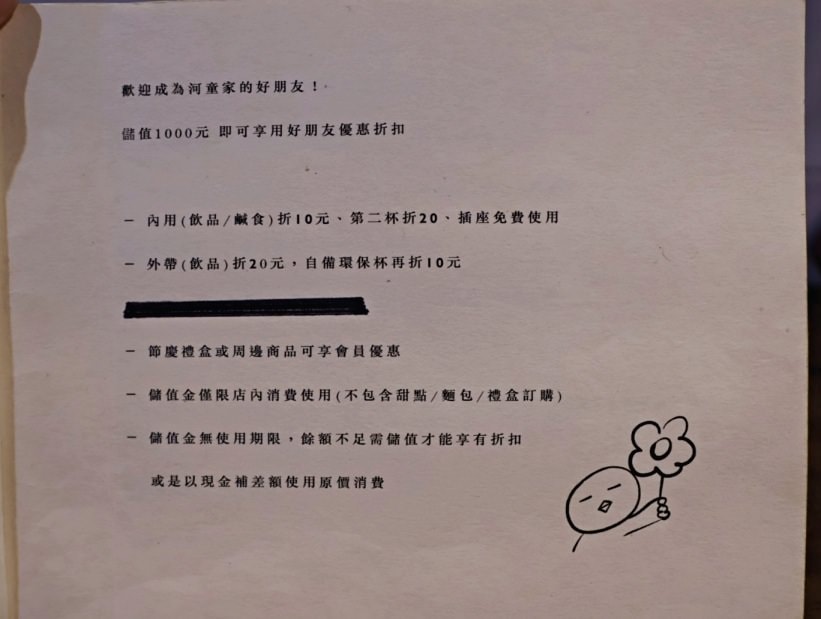 歡迎成為河童家的好朋友！
儲值1000元 即可享用好朋友優惠折扣
－ 內用(飲品/鹹食)折10元、第二杯折20、插座免費使用
－ 外帶(飲品)折20元，自備環保杯再折10元
－ 節慶禮盒或周邊商品可享會員優惠
－ 儲值金僅限店內消費使用(不包含甜點/麵包/禮盒訂購)
－ 儲值金無使用期限，餘額不足需儲值才能享有折扣
或是以現金補差額使用原價消費